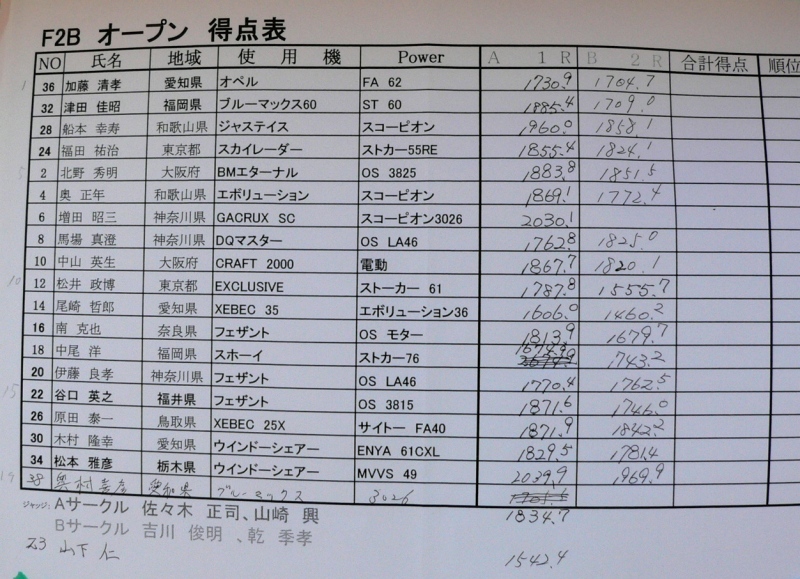 F2B オープン 得点表
NO 氏名 地域 使用機 Power A 1R B 2R 合計得点 順位
1 36 加藤 清孝 愛知県 オペル FA 62 1730.9 1704.7
32 津田 佳昭 福岡県 ブルーマックス60 ST 60 1885.4 1709.0
28 船本 幸寿 和歌山県 ジャステイス スコーピオン 1960.0 1858.1
24 福田 祐治 東京都 スカイレーダー ストカー55RE 1855.4 1824.1
5 2 北野 秀明 大阪府 BMエターナル OS 3825 1883.8 1851.5
4 奥 正年 和歌山県 エボリューション スコーピオン 1869.1 1772.4
6 増田 昭三 神奈川県 GACRUX SC スコーピオン3026 2030.1
8 馬場 真澄 神奈川県 DQマスター OS LA46 1762.8 1825.0
10 中山 英生 大阪府 CRAFT 2000 電動 1867.7 1820.1
10 12 松井 政博 東京都 EXCLUSIVE ストーカー 61 1787.8 1555.7
14 尾崎 哲郎 愛知県 XEBEC 35 エボリューション36 1606.0 1460.2
16 南 克也 奈良県 フェザント OS モター 1813.9 1679.7
18 中尾 洋 福岡県 スホーイ ストカー76 1674.3 1743.2
20 伊藤 良孝 神奈川県 フェザント OS LA46 1770.4 1762.5
15 22 谷口 英之 福井県 フェザント OS 3815 1871.6 1746.0
26 原田 泰一 鳥取県 XEBEC 25X サイトー FA40 1871.9 1842.2
30 木村 隆幸 愛知県 ウインドーシェアー ENYA 61CXL 1829.5 1781.4
34 松本 雅彦 栃木県 ウインドーシェアー MVVS 49 2039.9 1969.9
19 38 奥村 彦 愛知県 ブルーマックス 3026
1834.7
ジャッジ: Aサークル 佐々木 正司、山崎 興
Bサークル 吉川 俊明 、乾 季孝
Z3 山下 仁 1542.4